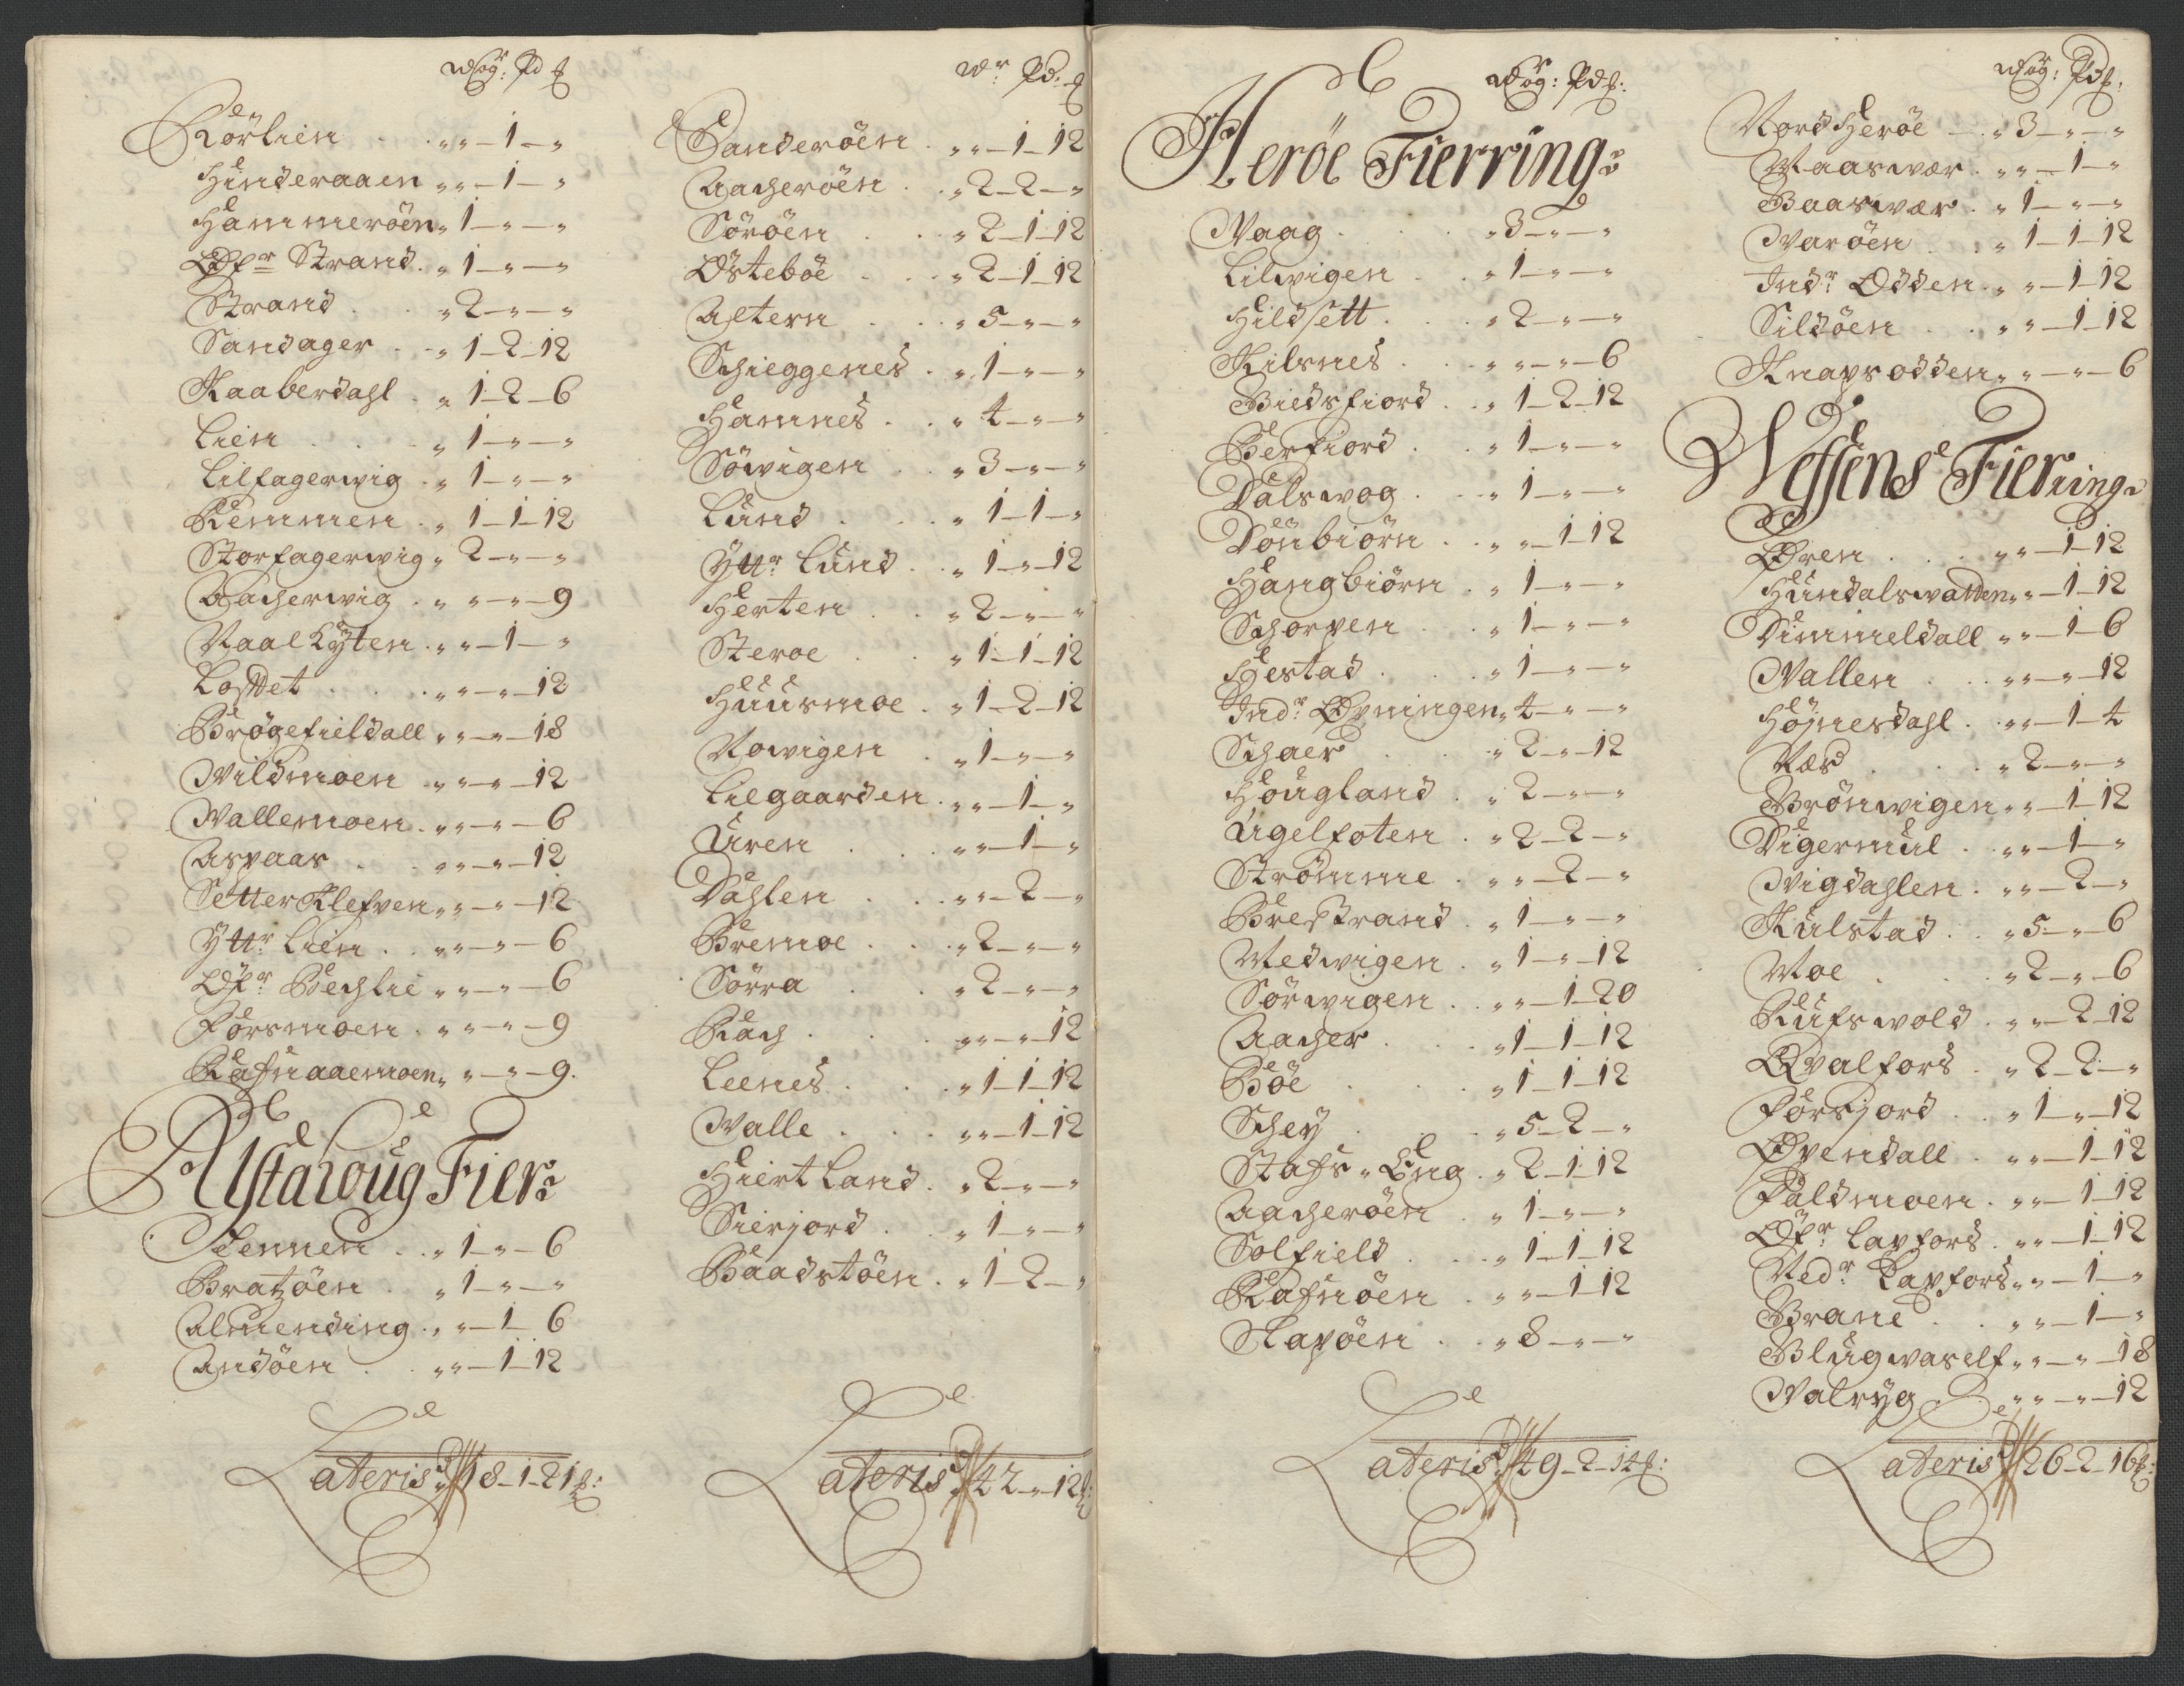 Wog: Pd
Rörlien . . „ „ — 1 — „
Hinderaaen „ „ — 1 — „
Hammeröen „ 1 — „ — „
Öfr Strand . „ 1 — „ — „
Strand . „ 2 — „ — „
Sandager . . „ 1 — 2 — 12
Kaaberdahl . „ 1 — 2 — 6
Lien . . . „ 1 — „ — „
Lilfagerwig . „ 1 — „ — „
Remmen . „ 1 — 1 — 12
Storfagerwig „ 2 — „ — „
Aacherwig . „ „ — „ — 9
Naal Kyten . „ „ — 1 — „
Losdet . . . „ „ — „ — 12
Brögefieldall „ „ — „ — 18
Wildmoen „ „ — „ — 12
Wallemoen . „ „ — „ — 6
Aspaas . . „ „ — „ — 12
Setter Klefven „ „ — „ — 12
Yttr Lien . „ „ — „ — 6
Öfr Bechlie „ „ — „ — 6
Forsmoen . „ „ — „ — 9
Rafnaaemoen „ „ — „ — 9.
Alstahoug Fier:
Tennen . . „ 1 — „ — 6
Bratzöen . „ 1 — „ — „
Almending . „ „ — 1 — 6
Andöen . . „ „ — 1 — 12
Lateris 18 — 1 — 21
Wr Pd.
Sanderöen . „ „ — 1 — 12
Aacheröen . „ 2 — 2 — „
Söröen . . „ 2 — 1 — 12
Östeböe . . „ 2 — 1 — 12
Altern . . „ 5 — „ — „
Schieggenes . „ 1 — „ — „
Hamnes . . „ 4 — „ — „
Söwigen . „ 3 — „ — „
Lund . . . „ 1 — 1 — „
Yttr Lund . „ 1 — „ — 12
Herten . . „ 2 — „ — „
Steroe . . „ 1 — 1 — 12
Huusmoe . „ 1 — 2 — 12
Nowigen . „ 1 — „ — „
Lilgaarden . „ „ — 1 — „
Uren . . . „ „ — 1 — „
Dahlen . . „ „ — 2 — „
Bremoe . . „ 2 — „ — „
Sörra . . „ 2 — „ — „
Rach . . . „ „ — „ — 12
Leenes . . „ 1 — 1 — 12
Walle . . . „ „ — 1 — 12
Hiertland . „ 2 — „ — „
Sierjord . . „ 1 — „ — „
Baadstöen . „ 1 — 2 — „
Lateris 42 — „ — 12
Wog: Pd
Heröe Fierring:
Waag . . . „ 3 — „ — „
Lilwigen . „ 1 — „ — „
Hildsett . . „ 2 — „ — „
Kilsnes . . „ „ — „ — 6
Biedsfiord . „ 1 — 2 — 12
Berfiord . „ 1 — „ — „
Dalswog . . „ 1 — „ — „
Dönbiörn . „ „ — 1 — 12
Hangbiörn . „ 1 — „ — „
Schorpen . „ 1 — „ — „
Hestad . . „ 1 — „ — „
Indr Øpningen „ 4 — „ — „
Schaer . . „ 2 — „ — 12
Hougland . „ 2 — „ — „
Ugelfoten . „ 2 — 2 — „
Strömme . „ „ — 2 — „
Brestrand . „ 1 — „ — „
Medwigen . „ 1 — „ — 12
Sörwigen . „ „ — 1 — 20
Aacher . . „ 1 — 1 — 12
Böe . . . „ 1 — 1 — 12
Schey . . . „ 5 — 2 — „
Stafs „ Eng . „ 2 — 1 — 12
Aacheröen . „ 1 — „ — „
Solfield . . „ 1 — 1 — 12
Rafnöen . „ „ — 1 — 12
Slapöen . . „ 8 — „ — „
Lateris 49 — 2 — 14
Wog: Pd
Nord Heröe — „ 3 — „ — „
Maaswær . „ „ — 1 — „
Baaswær . „ 1 — „ — „
Waröen . . „ 1 — 1 — 12
Indr Odden . „ „ — 1 — 12
Sildöen . . „ „ — 1 — 12
Knaps odden „ „ — „ — 6
Wefsens Fierring:
Øren . . . „ „ — 1 — 12
Hundalswatten „ „ — 1 — 12
Dimmeldall „ „ — 1 — 6
Wallen . . „ „ — „ — 12
Höjnesdahl . „ „ — 1 — 4
Næs . . . „ 2 — „ — „
Brönwigen „ „ — 1 — 12
Digermul . „ „ — 1 — „
Wigdahlen . „ „ — 2 — „
Kulstad . . „ 5 — „ — 6
Moe . . . „ 2 — „ — 6
Rufswold . „ „ — 2 — 12
Qvalfors . „ 2 — 2 — „
Forsjord . . „ 1 — „ — 12
Øvendall . „ „ — 1 — 12
Faldmoen . „ „ — 1 — 12
Öfr Lapfors . „ „ — 1 — 12
Nedr Lapfors „ „ — 1 — „
Brane . . „ „ — 1 — „
Blugwaself „ „ — „ — 18
Walryg . . „ „ — „ — 12
Lateris 26 — 2 — 16